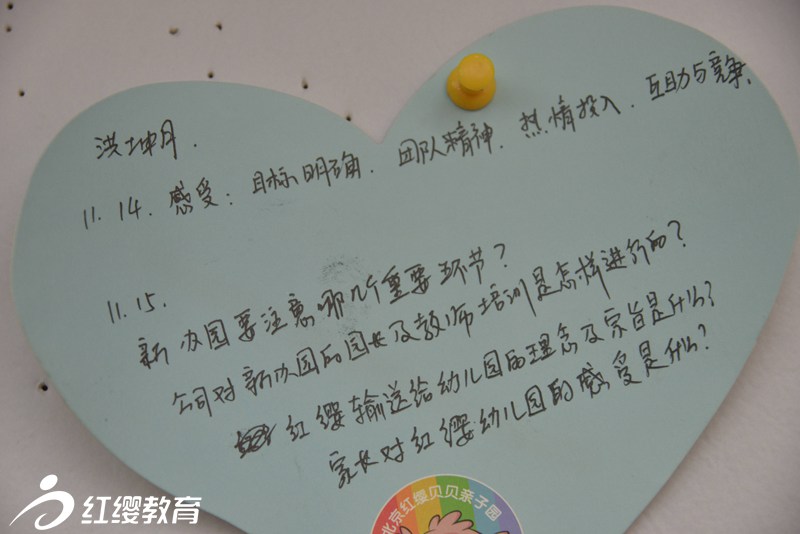 洪坤月.
11.14. 感受: 目标明确. 团队精神. 热情投入. 互助与竞争.
11.15.
新办园要注意哪几个重要环节?
公司对新办园的园长及教师培训是怎样进行的?
红缨输送给幼儿园的理念及宗旨是什么?
家长对红缨幼儿园的感受是什么?
北京红缨贝贝亲子园
红缨教育